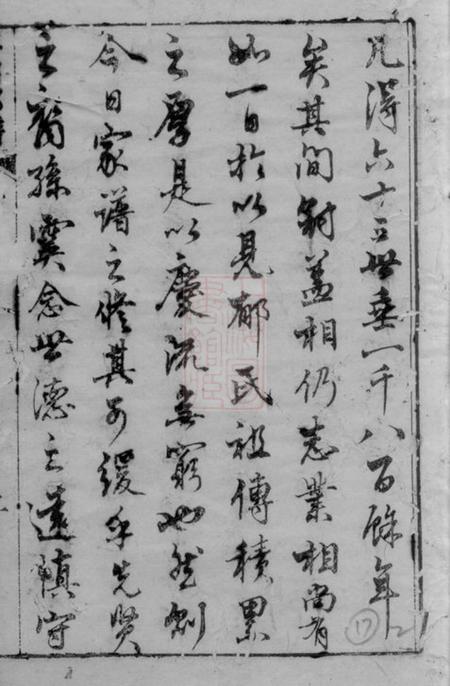 凡得六十三世垂一千八百餘年
矣其間冠蓋相仍志業相尚有
如一日於以見郁氏祖傳積累
之厚是以慶流無窮也然則
今日家譜之修其可緩乎先賢
之裔孫實念世德之遠慎守
17